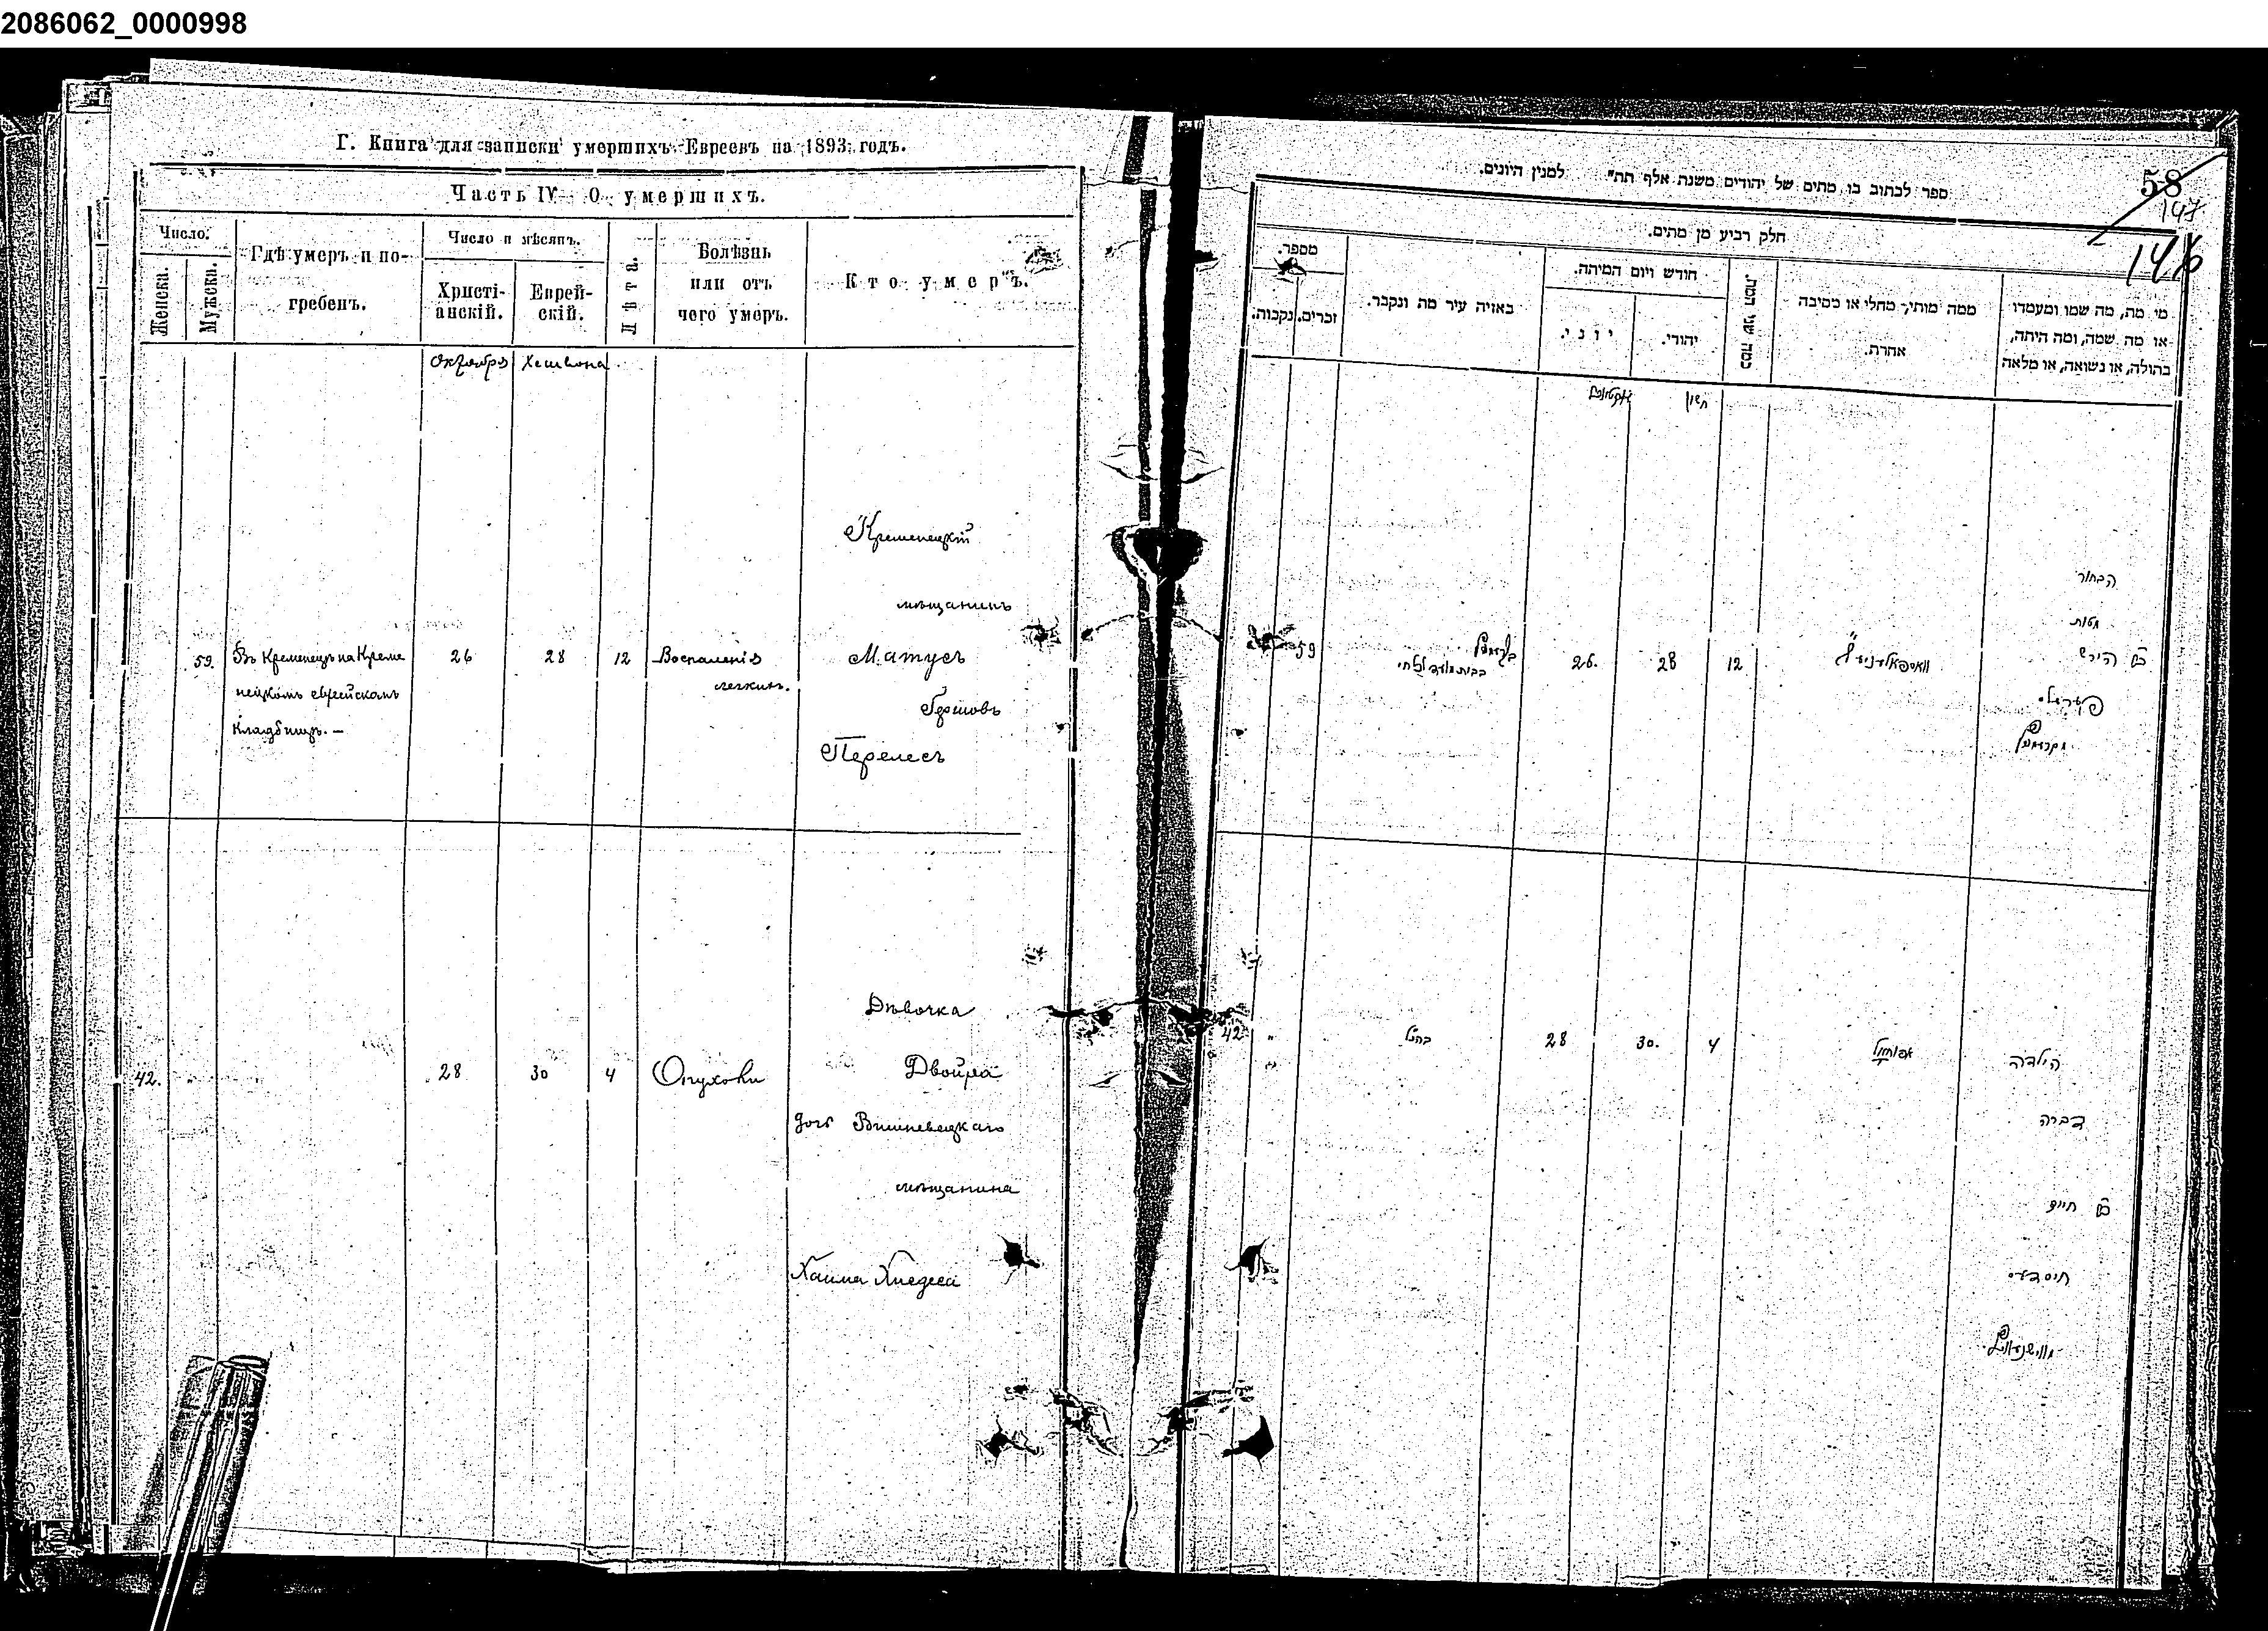 2086062_0000998
Г. Книга для записки умершихъ Евреевъ на 1893 годъ.
Часть IV О умершихъ.
Число.
Женска.
Мужска.
Гдѣ умеръ и по-
гребенъ.
Число и мѣсяцъ.
Христі-
анскій.
Еврей-
скій.
Лѣта.
Болѣзнь
или отъ
чего умеръ.
Кто умеръ.
Октября Хешвона
59. Въ Кременецѣ на Креме
нецкомъ еврейскомъ
кладбищѣ. —
26 28 12
Воспаленія
легкихъ.
Кременецкій
мѣщанинъ
Матусъ
Гершовъ
Перелесъ
42. 28 30 4 Опухоли
Дѣвочка
Двойра
дочь Вишневецкаго
мѣщанина
Хаима Хиедеса
ספר לכתוב בו מתים של יהודים משנת אלף תת" למנין היונים.
58
147
146
חלק רביע מן מתים.
מספר.
נקבות.
זכרים.
באיזה עיר מת ונקבר.
חודש ויום המיתה.
יוני.
יהודי.
כמה שני המת.
ממה מותי, מחלי או מסיבה
אחרת.
מי מת, מה שמו ומעמדו
או מה שמה, ומה היתה,
בתולה, או נשואה, או מלאה
חשון
59
26. 28 12
הבחור
מטות
הירש
42 28 30. 4
הילדה
דברה
חיים